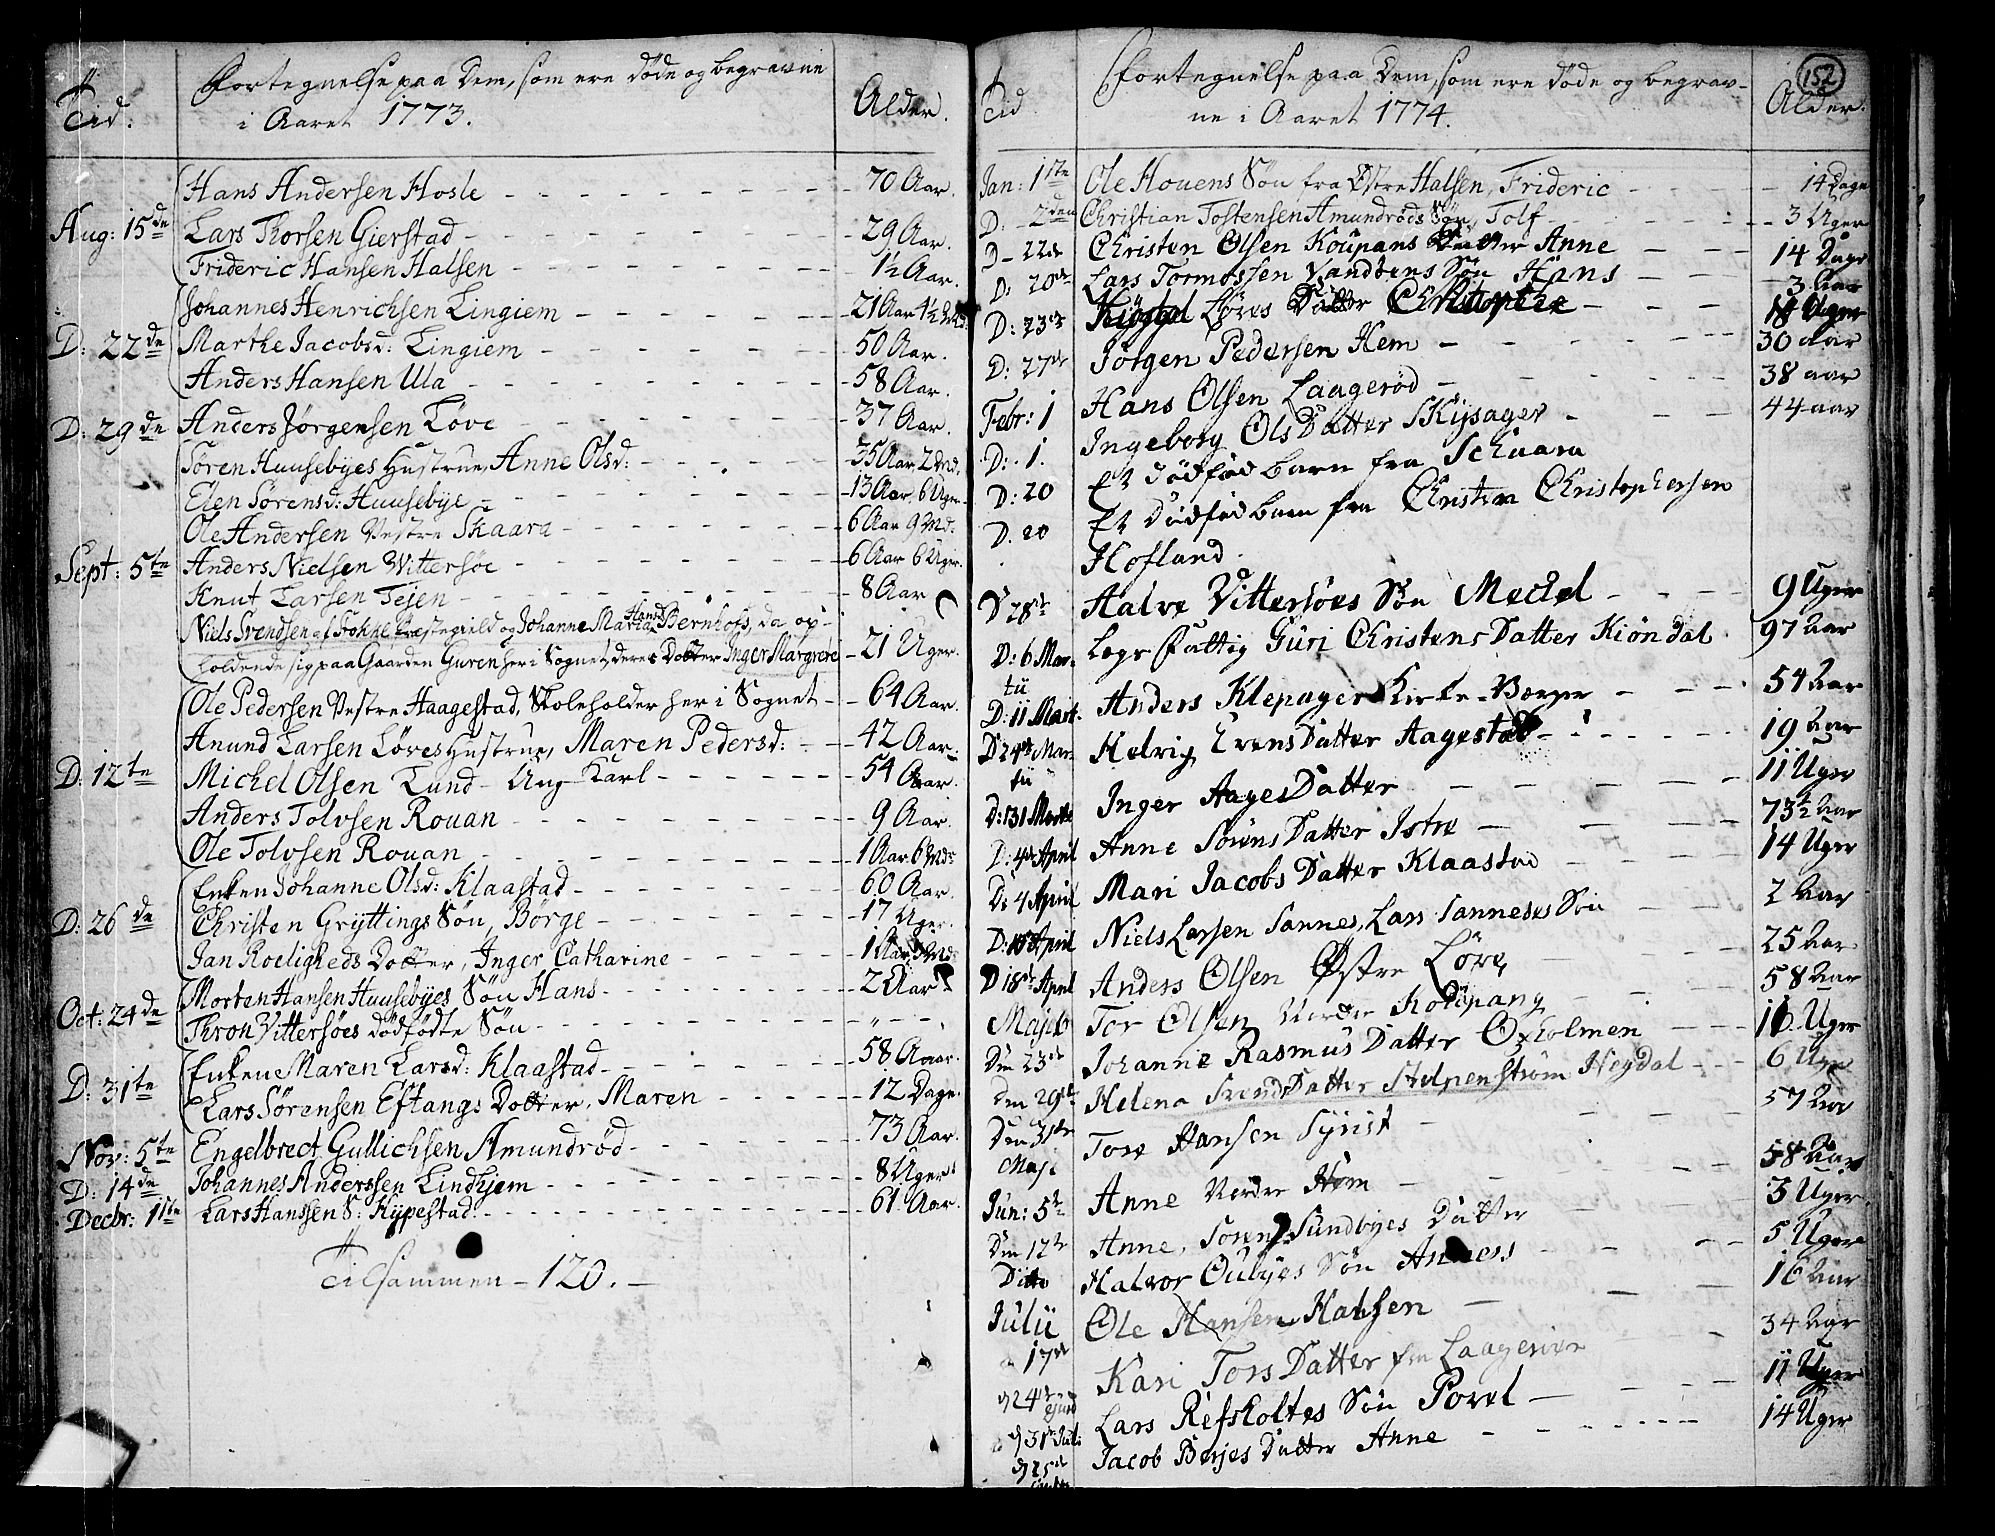 Tid.
Fortegnelse paa Dem, som ere døde og begravne
i Aaret 1773.
Alder.
Hans Andersen Hosle 70 Aar.
Aug: 15de Lars Thorsen Gierstad 29 Aar.
Frideric Hansen Halsen 1½ Aar.
Johannes Henrichsen Lingiem 21 Aar
D: 22de Marthe Jacobsd: Lingiem 50 Aar.
Anders Hansen Ula 58 Aar.
D: 29de Anders Jørgensen Løve 37 Aar.
Søren Huusebÿes Hustrue, Anne Olsd: 35 Aar 2 Md.
Elen Sørensd: Huusebÿe 13 Aar 6 Uger
Ole Andersen Vestre Skaara 6 Aar 9 Md.
Sept: 5te Anders Nielsen Wittersøe 6 Aar 6 Uger.
Knut Larsen Tejen 8 Aar
Niels Svendsen af Præstegield og Johanne Maria Hans Bernhofs, da op-
holdende sig paa Gaarden Guren her i Sognet, deres Dotter Inger Margrete 21 Uger.
Ole Pedersen Vestre Haagestad, Skoleholder her i Sognet 64 Aar.
Anund Larsen Løves Hustrue, Maren Pedersd: 42 Aar.
D: 12te Michel Olsen Lund - Ung Karl 54 Aar.
Anders Tolvsen Rouan 9 Aar.
Ole Tolvsen Rouan 1 Aar 6 Mdr
Enken Johanne Olsd: Klaastad 60 Aar.
D: 26de Christen Grÿttings Søn, Børge 17 Uger.
Jan Roeligheds Dotter, Inger Catharine 1 Aar
Oct: 24de Morten Hansen Huusebÿes Søn Hans 2 Aar
Thron Vittersøes dødfødte Søn
Enken Maren Larsd: Klaastad 58 Aar.
D: 31te Lars Sørensen Eftangs Dotter, Maren 12 Dage.
Nov: 5te Engelbrect Gullichsen Amundrød 73 Aar.
D: 14de Johannes Anderssen Lindhjem 8 Uger
Decbr: 11te Lars Hanssen S: Kÿpestad 61 Aar.
Tilsammen - 120.
152
Tid
Fortegnelse paa Dem, som ere døde og begrav-
ne i Aaret 1774.
Alder.
Jan: 1ste Ole Houens Søn fra Østre Halsen, Frideric 14 Dage
D. 2den Christian Tostensen Amundrøds Søn, Tolf 3 Uger
D 22de Christen Olsen Koupans Datter Anne 14 Dage
D: 20de Lars Tormossen Vandbens Søn Hans 3 Aar
D: 23de Datter Uger
D: 27de Jörgen Pedersen Hem 30 aar
Febr: 1 Hans Olsen Laagerød 38 aar
D: 1. Ingeborg Ols Datter Skÿsager 44 aar
D: 20 Et dødfød Barn fra Schaara
D. 20 Et dødfød Barn fra Christen Christophersen
Hofland
D 28de Halve Vittersöes Sön Mechel 9 Uger
D: 6 Mar-
tii Legs Fattig Guri Christens Datter Kiöndal 97 Aar
D: 11 Mart. Anders Klepager Kirke-Værger 54 Aar
D 24de Mar-
tii Helvig Evens Datter Aagestad 19 Aar
D: 31 Martii Inger Aages Datter 11 Uger
D: 4de April Anne Sörens Datter Istre 73½ Aar
D: 4 April Mari Jacobs Datter Klaastad 14 Uger
D: April Niels Larsen Sannes, Lars Sanneses Søn 2 Aar
D 18de April Anders Olsen Østre Löve 25 Aar
Maji 6 Tor Olsen Nordre Kopang 58 Aar
Den 23de Johanne Rasmus Datter Oxholmen 16 Uger
Den 29de Helena Svends Datter Heydal 6 Uger
Den 31te
Maji Tore Hansen Syrist 57 Aar
Jun: 5te Anne Nordre Hem 58 Aar
Den 12te Anne, Sören Sundbÿes Datter 3 Uger
Ditto Halvor Oulÿes Søn Anders 5 Uger
Julii
17de Ole Hansen Halsen 16 Aar
D 24de ejusd Kari Tors Datter fra Laagerød 34 Aar
D 31te Juli Lars Refsholtes Sön Povel 11 Uger
D 25de Jacob Berjes Datter Anne 14 Uger